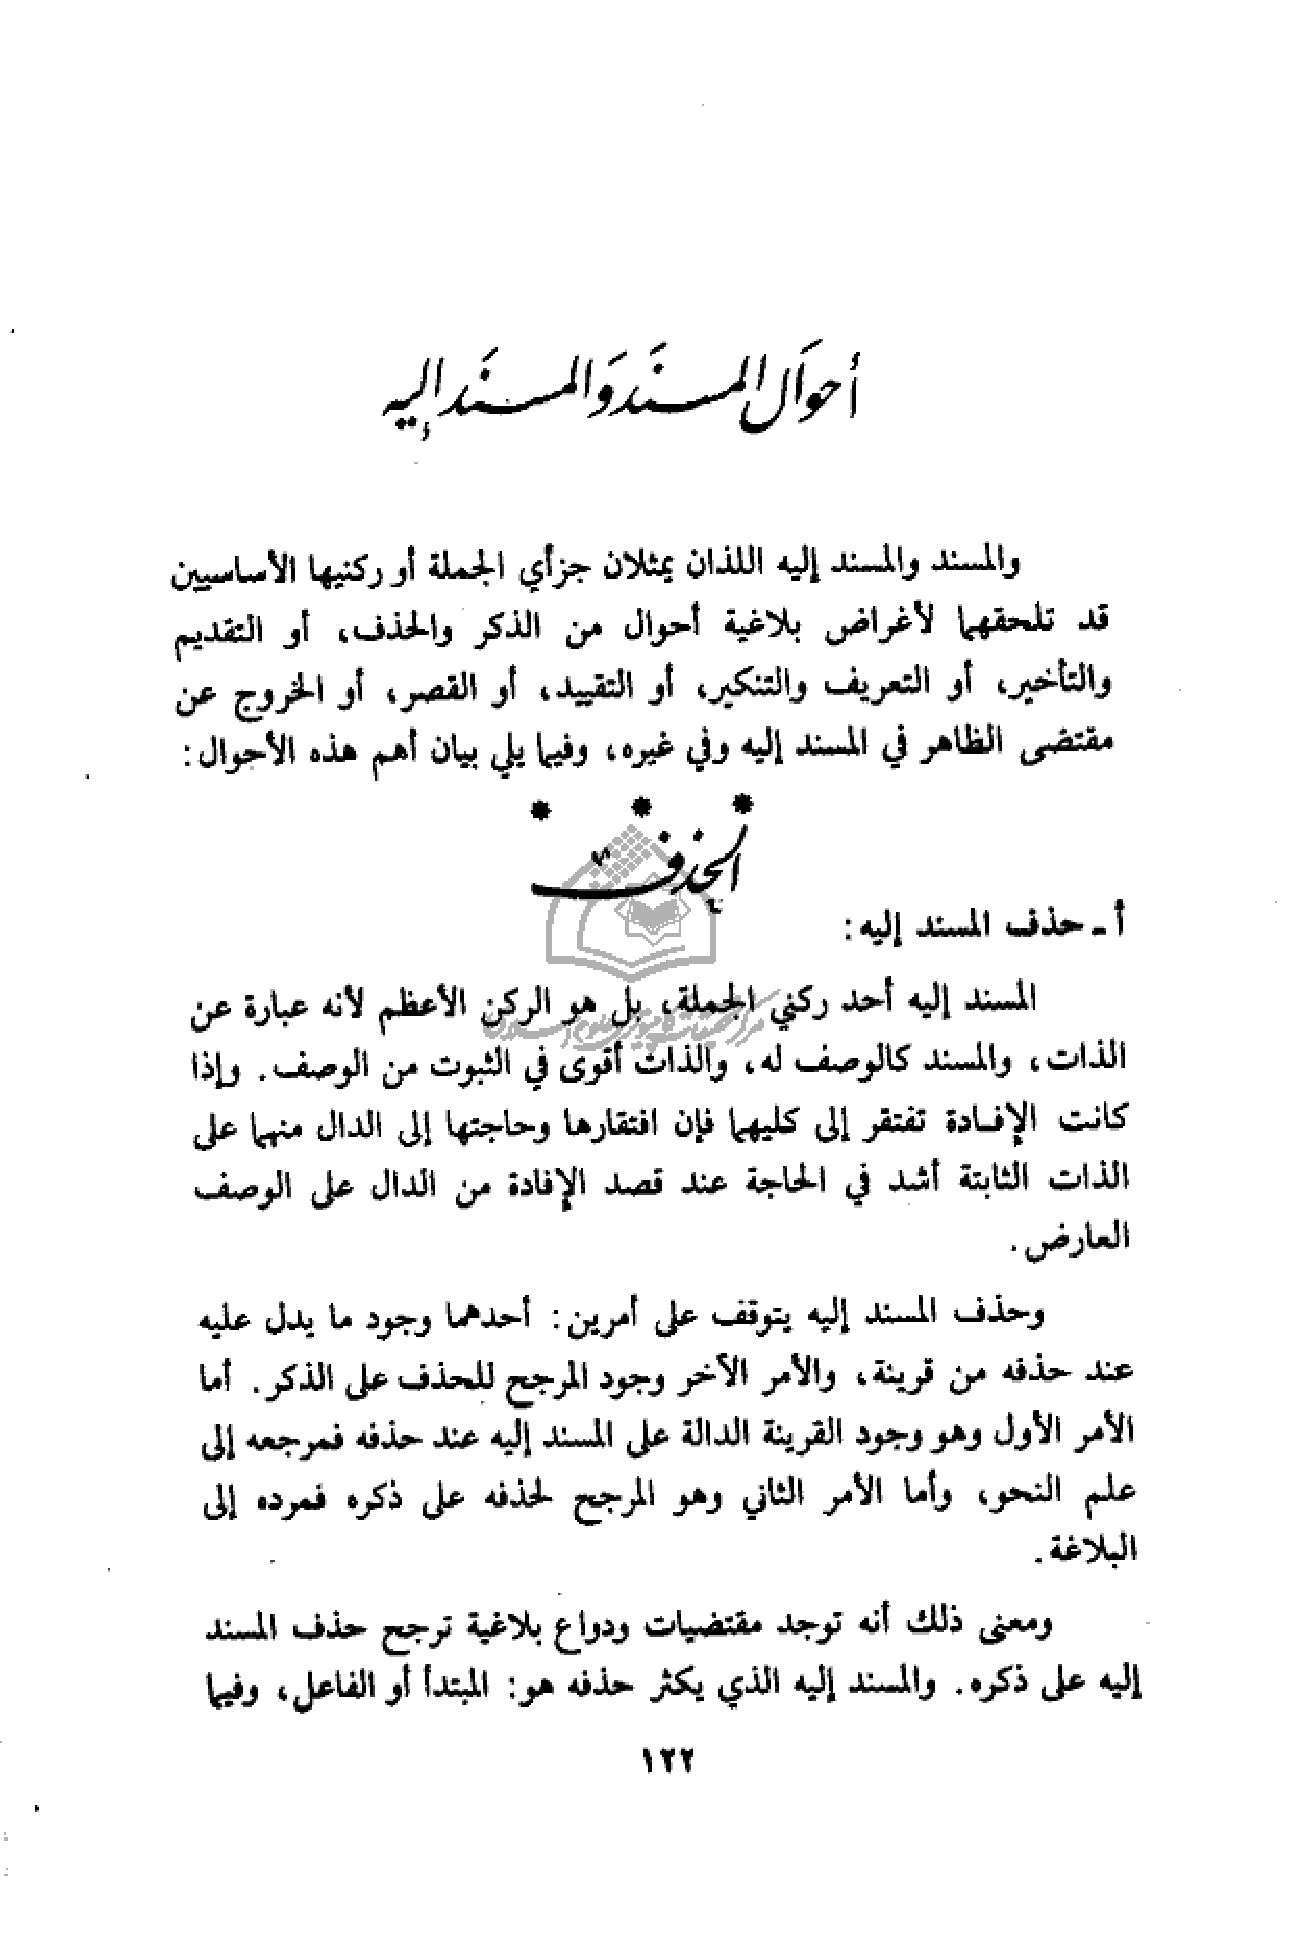 أحوال المسنَد وَالمسنَد إليه
والمسند والمسند إليه اللذان يمثلان جزأي الجملة أو ركنيها الأساسيين
قد تلحقهما لأغراض بلاغية أحوال من الذكر والحذف، أو التقديم
والتأخير، أو التعريف والتنكير، أو التقييد، أو القصر، أو الخروج عن
مقتضى الظاهر في المسند إليه وفي غيره، وفيما يلي بيان أهم هذه الأحوال:
* * *
الحذف
أ ـ حذف المسند إليه:
المسند إليه أحد ركني الجملة، بل هو الركن الأعظم لأنه عبارة عن
الذات، والمسند كالوصف له، والذات أقوى في الثبوت من الوصف. وإذا
كانت الإفادة تفتقر إلى كليهما فإن افتقارها وحاجتها إلى الدال منهما على
الذات الثابتة أشد في الحاجة عند قصد الإفادة من الدال على الوصف
العارض.
وحذف المسند إليه يتوقف على أمرين: أحدهما وجود ما يدل عليه
عند حذفه من قرينة، والأمر الآخر وجود المرجح للحذف على الذكر. أما
الأمر الأول وهو وجود القرينة الدالة على المسند إليه عند حذفه فمرجعه إلى
علم النحو، وأما الأمر الثاني وهو المرجح لحذفه على ذكره فمرده إلى
البلاغة.
ومعنى ذلك أنه توجد مقتضيات ودواع بلاغية ترجح حذف المسند
إليه على ذكره. والمسند إليه الذي يكثر حذفه هو: المبتدأ أو الفاعل، وفيما
١٢٢